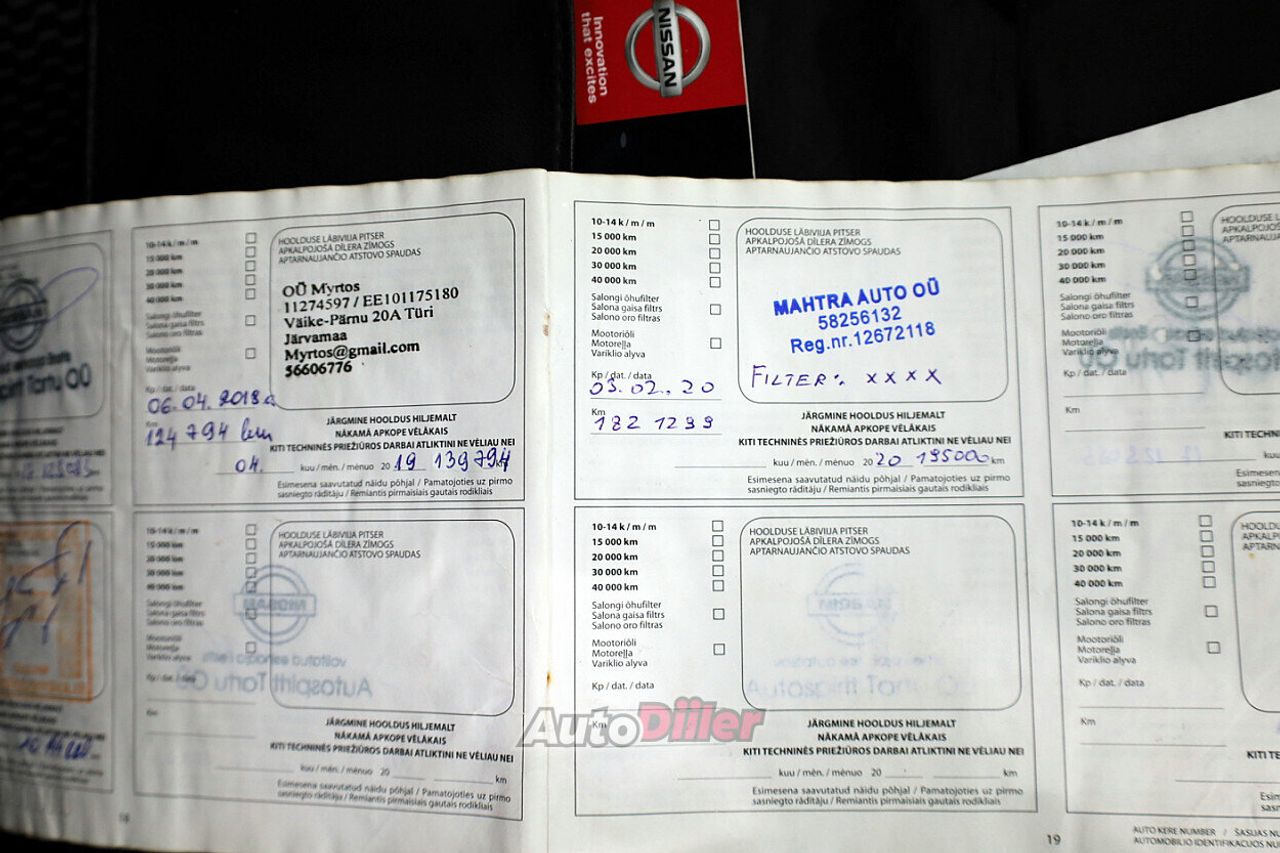 NISSAN
Innovation
that excites
10-14 k / m / m
15 000 km
20 000 km
30 000 km
40 000 km
Salongi õhufilter
Salona gaisa filtrs
Salono oro filtras
Mootoriõli
Motoreļļa
Variklio alyva
Kp / dat. / data
06.04. 2018a
124 794 km
HOOLDUSE LÄBIVIIJA PITSER
APKALPOJOŠĀ DĪLERA ZĪMOGS
APTARNAUJANČIO ATSTOVO SPAUDAS
OÜ Myrtos
11274597 / EE101175180
Väike-Pärnu 20A Türi
Järvamaa
Myrtos@gmail.com
56606776
JÄRGMINE HOOLDUS HILJEMALT
NĀKAMĀ APKOPE VĒLĀKAIS
KITI TECHNINĖS PRIEŽIŪROS DARBAI ATLIKTINI NE VĖLIAU NEI
04. kuu / mēn. / mėnuo 20 19 139794 km
Esimesena saavutatud näidu põhjal / Pamatojoties uz pirmo
sasniegto rādītāju / Remiantis pirmaisiais gautais rodikliais
10-14 k / m / m
15 000 km
20 000 km
30 000 km
40 000 km
Salongi õhufilter
Salona gaisa filtrs
Salono oro filtras
Mootoriõli
Motoreļļa
Variklio alyva
Kp / dat. / data
Km
HOOLDUSE LÄBIVIIJA PITSER
APKALPOJOŠĀ DĪLERA ZĪMOGS
APTARNAUJANČIO ATSTOVO SPAUDAS
JÄRGMINE HOOLDUS HILJEMALT
NĀKAMĀ APKOPE VĒLĀKAIS
KITI TECHNINĖS PRIEŽIŪROS DARBAI ATLIKTINI NE VĖLIAU NEI
kuu / mēn. / mėnuo 20 km
Esimesena saavutatud näidu põhjal / Pamatojoties uz pirmo
sasniegto rādītāju / Remiantis pirmaisiais gautais rodikliais
10-14 k / m / m
15 000 km
20 000 km
30 000 km
40 000 km
Salongi õhufilter
Salona gaisa filtrs
Salono oro filtras
Mootoriõli
Motoreļļa
Variklio alyva
Kp / dat. / data
03.02.. 20
Km
182 1299
HOOLDUSE LÄBIVIIJA PITSER
APKALPOJOŠĀ DĪLERA ZĪMOGS
APTARNAUJANČIO ATSTOVO SPAUDAS
MAHTRA AUTO OÜ
58256132
Reg.nr.12672118
FILTER: xxxx
JÄRGMINE HOOLDUS HILJEMALT
NĀKAMĀ APKOPE VĒLĀKAIS
KITI TECHNINĖS PRIEŽIŪROS DARBAI ATLIKTINI NE VĖLIAU NEI
kuu / mēn. / mėnuo 20 20 19500 km
Esimesena saavutatud näidu põhjal / Pamatojoties uz pirmo
sasniegto rādītāju / Remiantis pirmaisiais gautais rodikliais
10-14 k / m / m
15 000 km
20 000 km
30 000 km
40 000 km
Salongi õhufilter
Salona gaisa filtrs
Salono oro filtras
Mootoriõli
Motoreļļa
Variklio alyva
Kp / dat. / data
Km
HOOLDUSE LÄBIVIIJA PITSER
APKALPOJOŠĀ DĪLERA ZĪMOGS
APTARNAUJANČIO ATSTOVO SPAUDAS
AutoDiiler
JÄRGMINE HOOLDUS HILJEMALT
NĀKAMĀ APKOPE VĒLĀKAIS
KITI TECHNINĖS PRIEŽIŪROS DARBAI ATLIKTINI NE VĖLIAU NEI
kuu / mēn. / mėnuo 20 km
Esimesena saavutatud näidu põhjal / Pamatojoties uz pirmo
sasniegto rādītāju / Remiantis pirmaisiais gautais rodikliais
10-14 k / m / m
15 000 km
20 000 km
30 000 km
40 000 km
Salongi õhufilter
Salona gaisa filtrs
Salono oro filtras
Mootoriõli
Motoreļļa
Variklio alyva
Kp / dat. / data
Km
10-14 k / m / m
15 000 km
20 000 km
30 000 km
40 000 km
Salongi õhufilter
Salona gaisa filtrs
Salono oro filtras
Mootoriõli
Motoreļļa
Variklio alyva
Kp / dat. / data
Km
19
AUTO KERE NUMBER